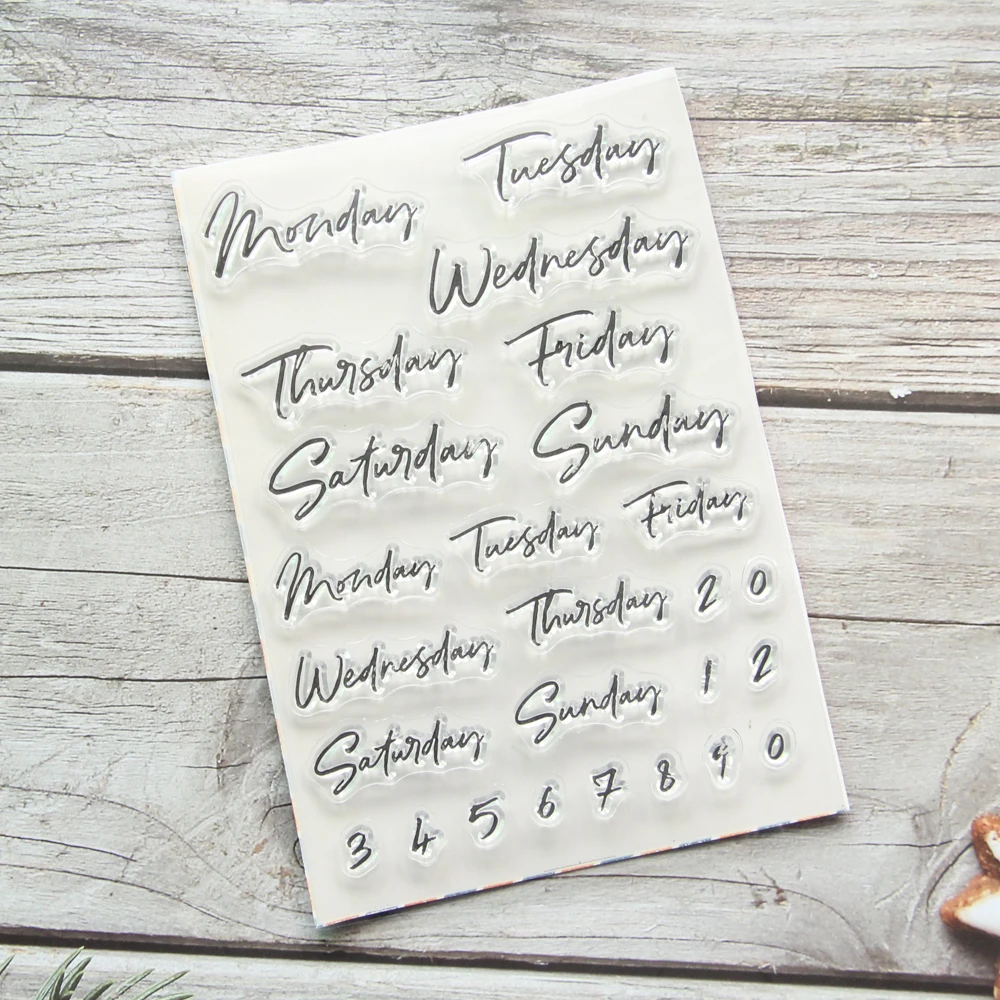 Monday Tuesday
Wednesday
Thursday Friday
Saturday Sunday
Monday Tuesday Friday
Wednesday Thursday 2 0
Saturday Sunday 1 2
3 4 5 6 7 8 9 0